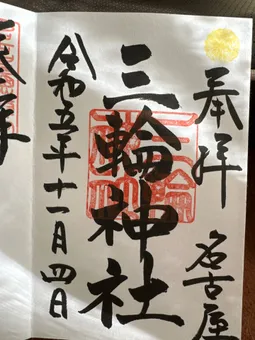 奉拝
名古屋
三輪神社
令和五年十一月四日